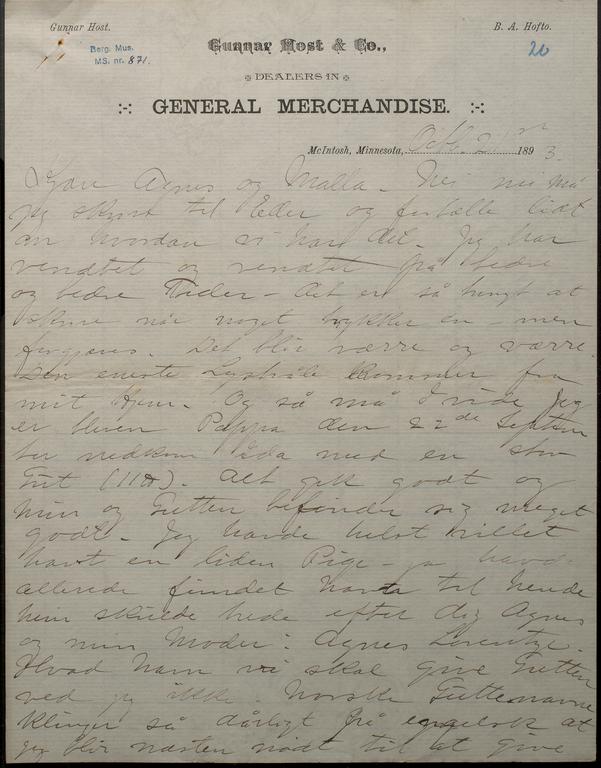 Gunnar Host.
B. A. Hofto.
Berg. Mus.
MS. nr. 871.
20
Gunnar Host & Co.,
DEALERS IN
GENERAL MERCHANDISE.
McIntosh, Minnesota, Octb. 21 1893.
Kjære Agnes og Malla - Nei nu må
jeg skrive til Eder og fortælle lidt
om hvordan vi har det. Jeg har
ventet og ventet på bedre
og bedre Tider - det er så tungt at
skrive når noget trykker en - men
forgjæves. Det blir værre og værre.
Den eneste Lysstråle kommer fra
mit Hjem. Og så må I vide Jeg
er bleven Pappa den 22de Septem
ber nedkom Ada med en stor
Gut (11 ℔). Alt gik godt og
hun og Gutten befinder sig meget
godt. Jeg havde helst villet
havt en liden Pige - ja havde
allerede fundet Navn til hende
hun skulde hede efter dig Agnes
og min Moder: Agnes Lorentze.
Hvad Navn vi skal give Gutten
ved jeg ikke. Norske Guttenavne
klinger så dårligt på engelsk at
jeg blir næsten nødt til at give